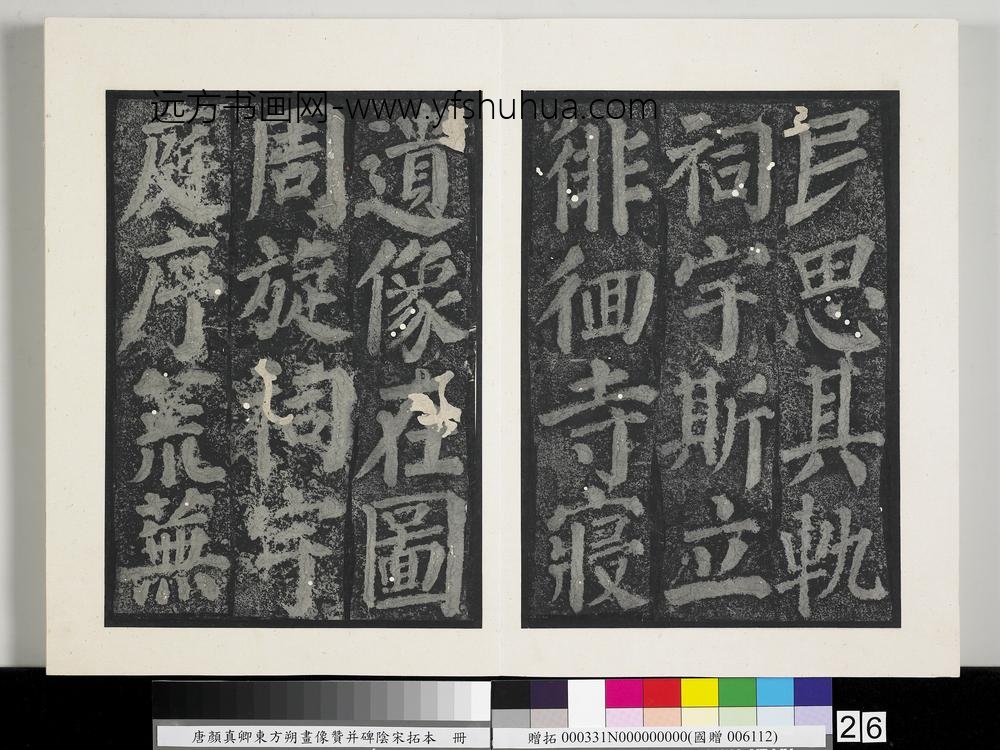 远方书画网-www.yfshuhua.com
民思其軌
祠宇斯立
徘徊寺寢
遺像在圖
周旋祠宇
庭序荒蕪
唐顏真卿東方朔畫像贊并碑陰宋拓本 冊
贈拓 000331N000000000(國贈 006112)
26